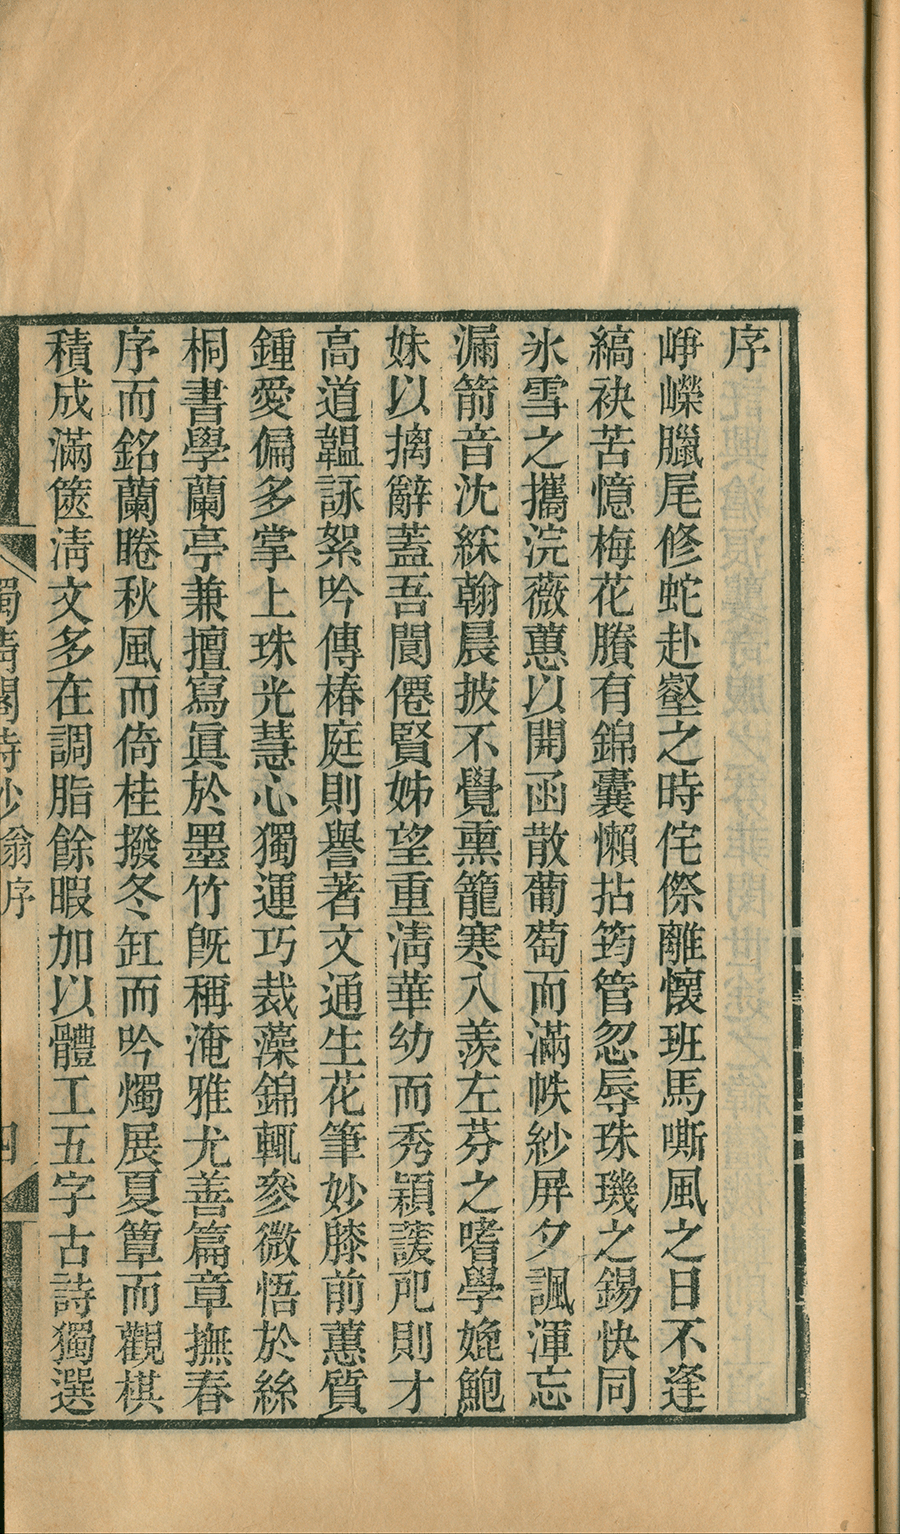 序
崢嶸臘尾修蛇赴壑之時侘傺離懷班馬嘶風之日不逢
縞袂苦憶梅花賸有錦囊懶拈筠管忽辱珠璣之錫快同
氷雪之攜浣薇蕙以開函散葡萄而滿帙紗屏夕諷渾忘
漏箭音沈綵翰晨披不覺熏籠寒入羨左芬之嗜學媲鮑
妹以摛辭蓋吾閬僊賢姊望重淸華幼而秀穎諼祀則才
高道韞詠絮吟傳椿庭則譽著文通生花筆妙膝前蕙質
鍾愛偏多掌上珠光慧心獨運巧裁藻錦輒參微悟於絲
桐書學蘭亭兼擅寫眞於墨竹旣稱淹雅尤善篇章撫春
序而銘蘭睠秋風而倚桂撥冬缸而吟燭展夏簟而觀棋
積成滿篋淸文多在調脂餘暇加以體工五字古詩獨選
翁序
四